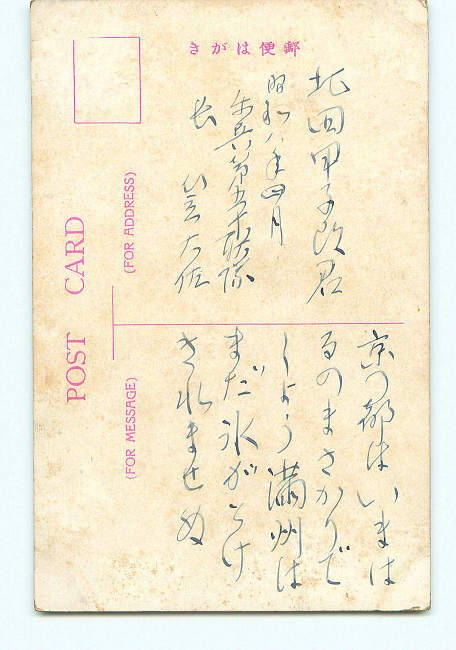 郵便はがき
北田甲子郎君
昭和八年四月
歩兵第五十聯隊
長 大佐
京の都はいまは
るのまさかりで
しょう満州は
まだ氷がとけ
きれませぬ
POST CARD
(FOR ADDRESS)
(FOR MESSAGE)